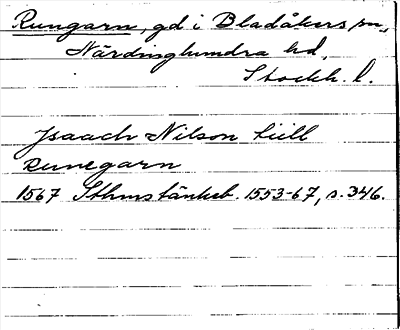 Rungarn, gd i Bladåkers sn,
Närdinghundra hd,
Stockh. l.
Jsaach Nilson tiill
Runegarn
1567 Sthmstänkeb. 1553-67, s. 346.